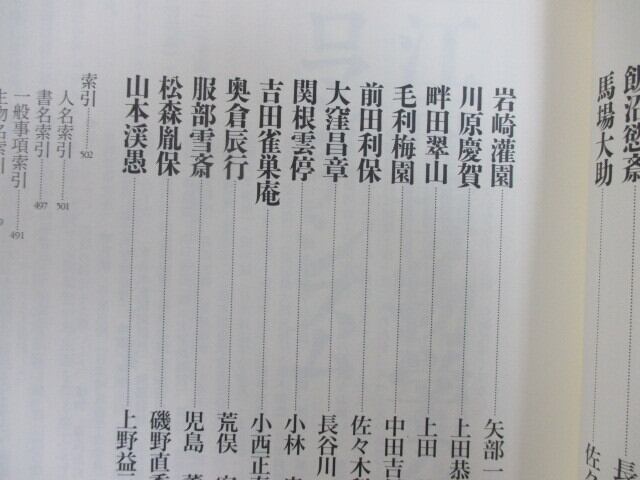 飯沼慾斎
馬場大助 佐
岩崎灌園 矢部一
川原慶賀 上田恭
畔田翠山 上田
毛利梅園 中田吉
前田利保 佐々木利
大窪昌章 長谷川
関根雲停 小林
吉田雀巣庵 小西正泰
奥倉辰行 荒俣
服部雪斎 児島
松森胤保 磯野直秀
山本渓愚 上野益三
索引 502
人名索引 501
書名索引 497
一般事項索引 491
生物名索引